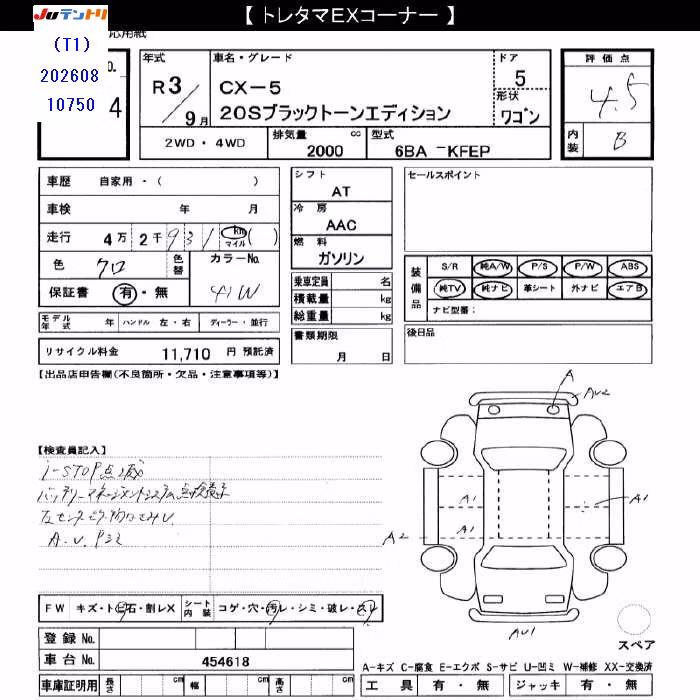 【 トレタマEXコーナー 】
JUテントリ
応用紙
(T1)
202608
10750
4
年式
R3/9月
車名・グレード
CX-5
20Sブラックトーンエディション
ドア
5
形状
ワゴン
評価点
4.5
内装
B
2WD・4WD
排気量 2000 cc
型式 6BA -KFEP
車歴 自家用・( )
車検 年 月
走行 4万2千931 km マイル ( )
色 クロ
色替
カラーNo. 41W
保証書 有・無
モデル年式 年 ハンドル 左・右 ディーラー・並行
リサイクル料金 11,710 円 預託済
シフト
AT
冷房
AAC
燃料
ガソリン
乗車定員 名
積載量 kg
総重量 kg
書類期限
月 日
セールスポイント
装備品
S/R 純A/W P/S P/W ABS
純TV 純ナビ 革シート 外ナビ エアB
ナビ型番:
後日品
【出品店申告欄(不良箇所・欠品・注意事項等)】
【検査員記入】
i-STOP点滅
A.U.Pシミ
A
AU2
A1
A1
A1
A2
AU1
スペア
FW キズ・トビ石・割レX
シート内装 コゲ・穴・汚レ・シミ・破レ・スレ
登録No.
車台No. 454618
車庫証明用 長さ cm 幅 cm 高さ cm
A-キズ C-腐食 E-エクボ S-サビ U-凹ミ W-補修 XX-交換済
工具 有・無 ジャッキ 有・無